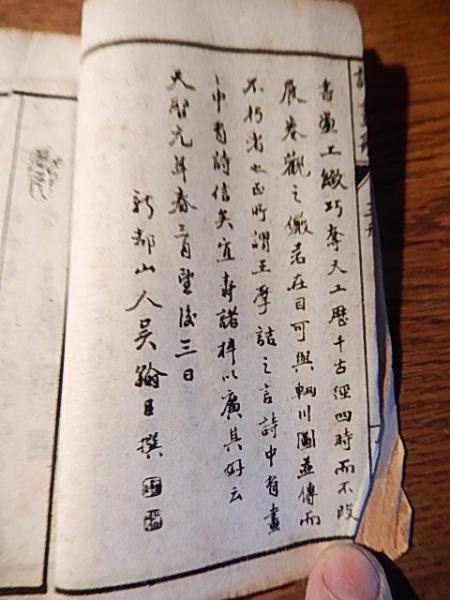 書畫工緻巧奪天工歷千古經四時而不改
展卷觀之儼若在目可與輞川圖並傳而
不朽者也正所謂王摩詰之言詩中有畫
中有詩信矣宜壽諸梓以廣其好云
天啓元年春三月望後三日
新都山人吳翰臣撰